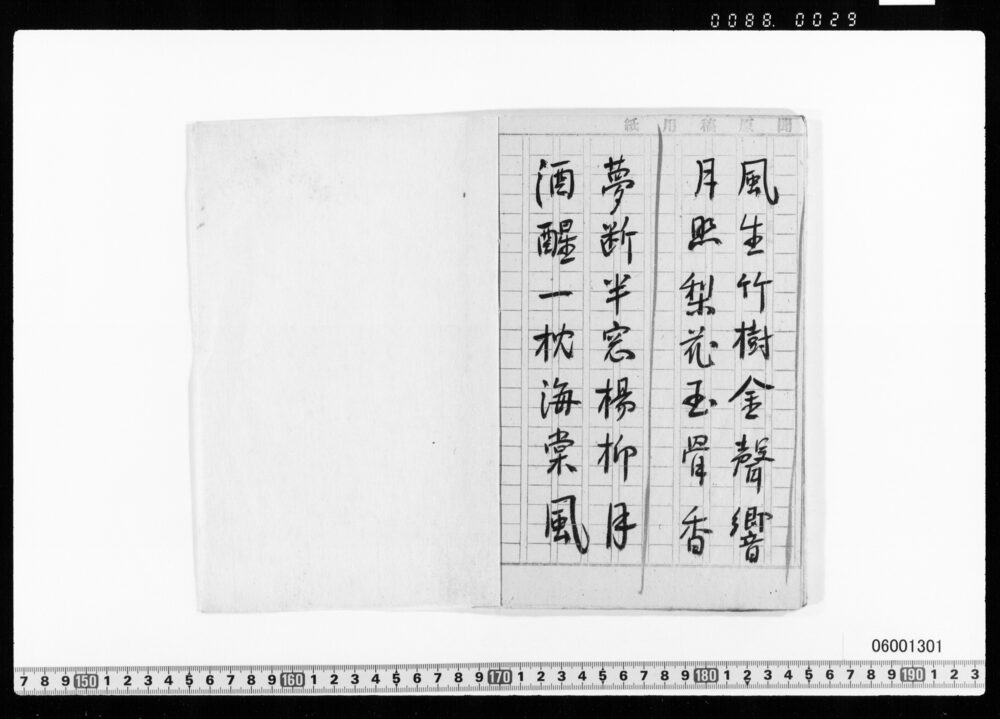 0088. 0029
開原稿用紙
風生竹樹金聲響
月照梨花玉骨香
夢断半窓楊柳月
酒醒一枕海棠風
06001301
7 8 9 150 1 2 3 4 5 6 7 8 9 160 1 2 3 4 5 6 7 8 9 170 1 2 3 4 5 6 7 8 9 180 1 2 3 4 5 6 7 8 9 190 1 2 3